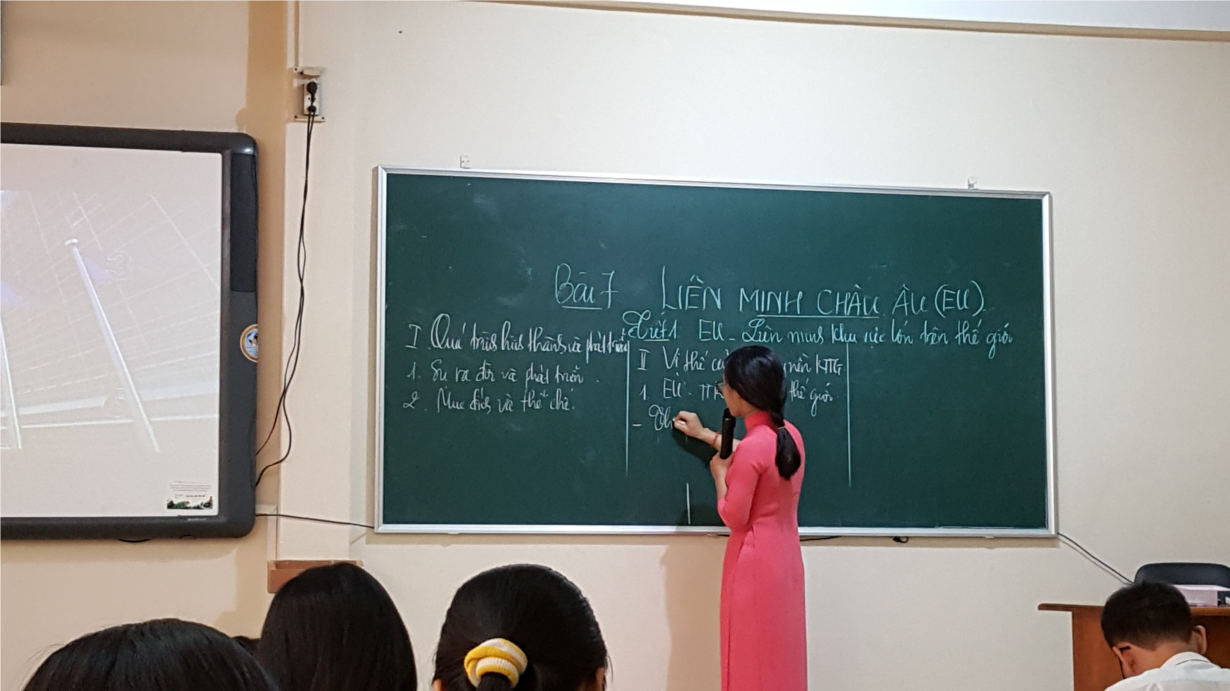 Bài 7 LIÊN MINH CHÂU ÂU (EU)
Tiết 1 EU - Liên minh khu vực lớn trên thế giới
I. Quá trình hình thành và phát triển
1. Sự ra đời và phát triển.
2. Mục đích và thể chế.
II Vị thế nền KTTG
1. EU - thế giới.
-